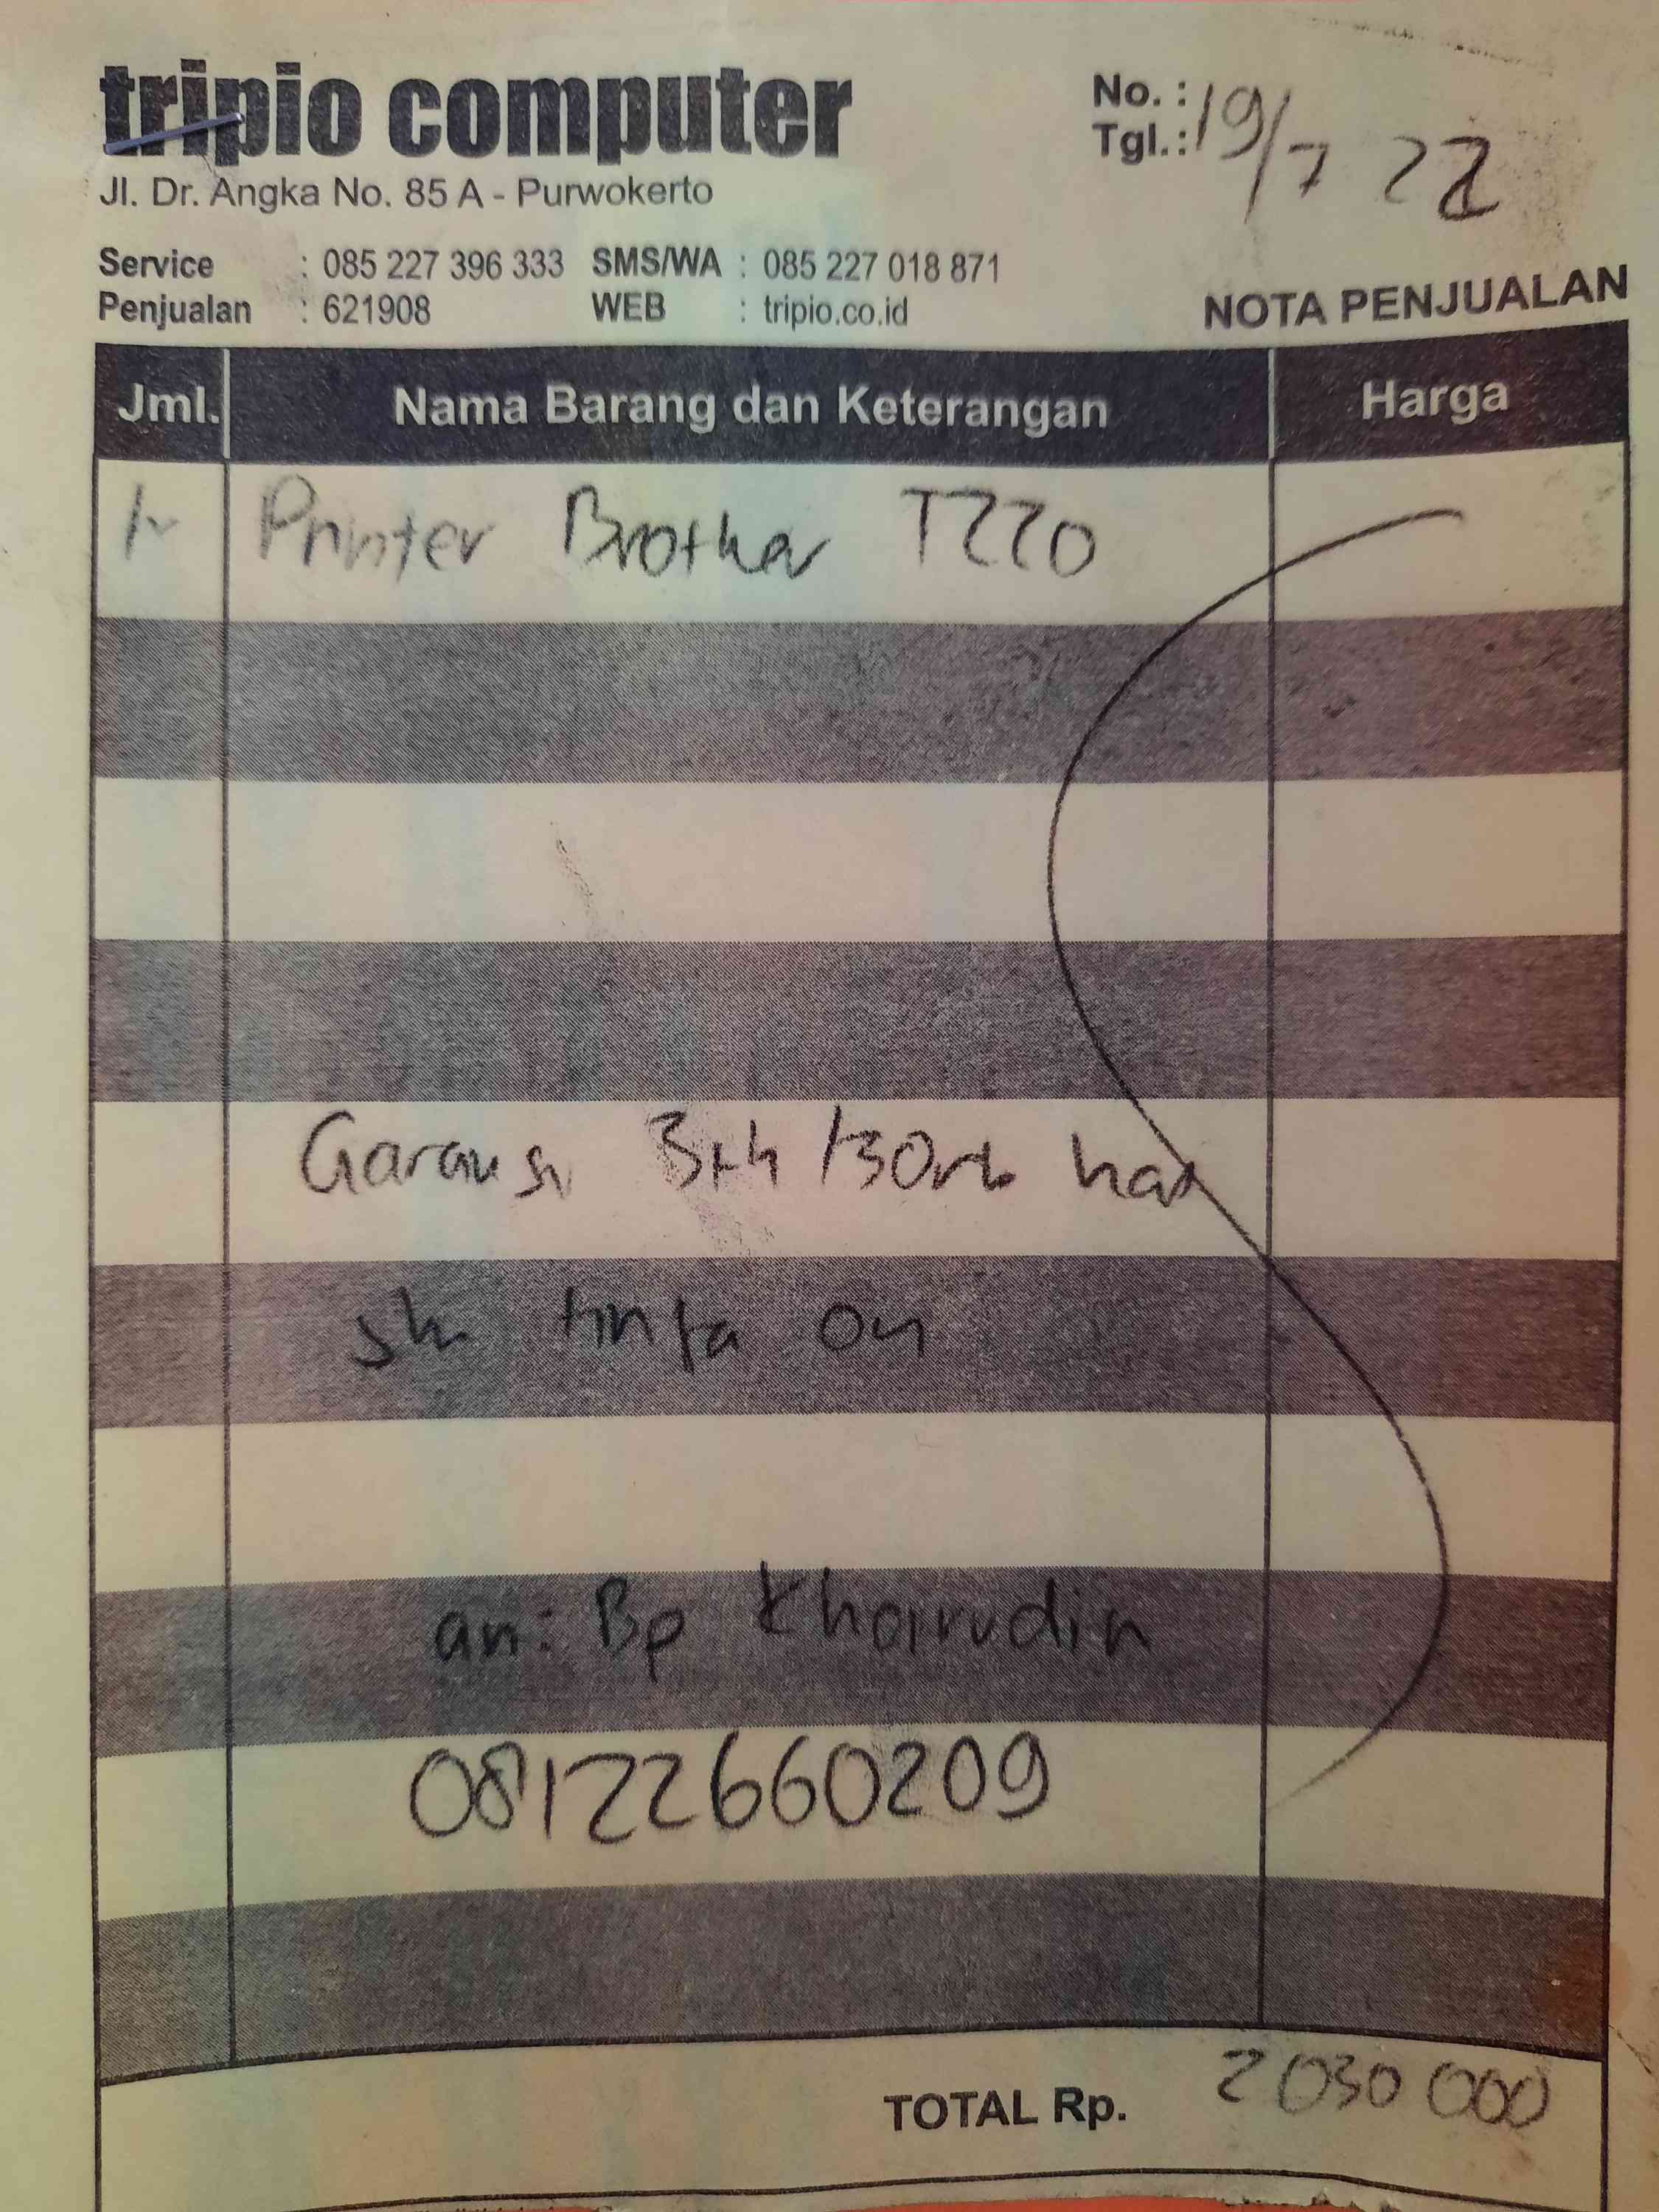 tripio computer
Jl. Dr. Angka No. 85 A - Purwokerto
No. :
Tgl. : 19/7 22
Service : 085 227 396 333 SMS/WA : 085 227 018 871
Penjualan : 621908 WEB : tripio.co.id
NOTA PENJUALAN
Jml. Nama Barang dan Keterangan Harga
1 Printer Brother T220
Garansi 3th /30rb hal
tinta ori
an: Bp Khoirudin
08122660209
TOTAL Rp. 2 030 000